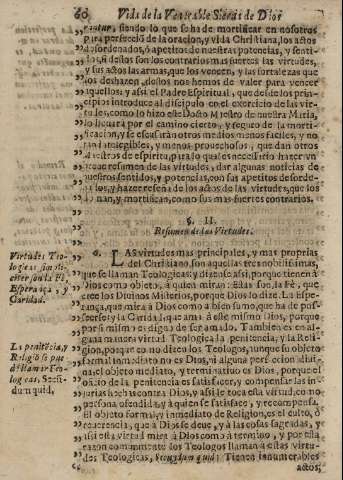 60 Vida de la Venerable Sierva de Dios
siendo lo que se ha de mortificar en nosotros
para perfecció de la oracion, y vida Christiana, los actos
desordenados, ò apetitos de nuestras potencias, y senti-
dos, si destos son los contrarios mas fuertes las virtudes,
y sus actos las armas, que los vencen, y las fortalezas que
los deshazen, destos nos hemos de valer para vencer
aquellos: y assi el Padre Espiritual, que desde los prin-
cipios introduce al discipulo en el exercicio de las vir-
tudes, como lo hizo este Docto Maestro de nuestra Maria,
lo llevarà por el camino cierto, y seguro de la morti-
ficacion, y se escusaràn otros medios menos faciles, y no
tan intelegibles, y menos prouechosos, que dan otros
Maestros de espiritu, para lo qual es necessario hazer vn
breue resumen de las virtudes, dar algunas noticias de
nuestros sentidos, y potencias, con sus apetitos desorde-
nados, y hazer reseña de los actos de las virtudes, que los
doman, y mortifican, como sus mas fuertes contrarios.
§. II.
Resumen de las Virtudes.
Virtudes Teo-
logicas son tres
Fè,
Esperança, y
Caridad.
LAS virtudes mas principales, y mas propias
del Christiano son aquellas tres nobilissimas,
que se llaman Teologicas; y dizense assi, porque tienen à
Dios como objeto, à quien miran. Estas son, la Fè, que
cree los Divinos Misterios, porque Dios lo dize. La Es-
perança, que mira à Dios como à bien sumo, que ha de pos-
seerse; y la Caridad, que ama à este mismo Dios, porque
por sì mismo es digno de ser amado. Tambien es en al-
guna manera virtud Teologica la penitencia, y la Reli-
gion, porque aunque no dizen los Teologos, aunque su objeto
formal inmediato no es Dios, ni alguna perfeccion divi-
na, el objeto mediato, y terminativo es Dios, porque el
oficio de la penitencia es satisfacer, y compensar las in-
jurias hechas contra Dios, y assi le toca esta virtud, como
persona ofendida, y à quien se satisfaze, y recompensa.
El objeto formal, y inmediato de Religion, es el culto, ò
reverencia, que à Dios se deve, y à las cosas sagradas, y
assi esta virtud mira à Dios como à termino, y por esta
razon comunmente los Teologos llaman à estas virtu-
des Teologicas, secundum quid: Tienen innumerables
actos;
La penitecia, y
Religiõ se pue
dẽ llamar Teo-
logicas, Secũ-
dum quid,